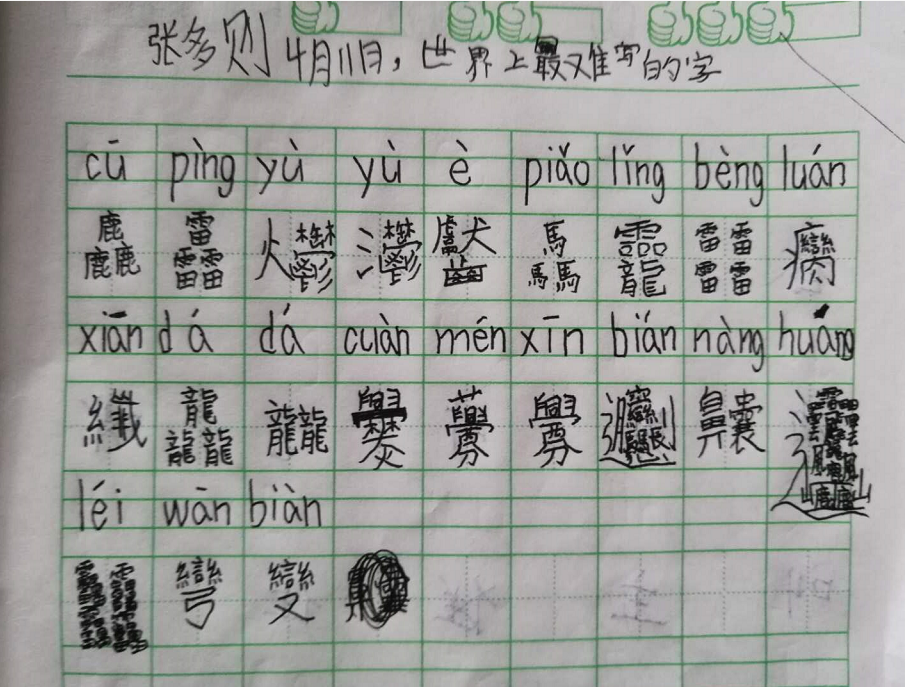 张多则 4月11日，世界上最难写的字
cū pìng yù yù è piǎo lǐng bèng luán
麤 䨻 爩 灪 㔩 驫 龗 䨻 癵
xiān dá dá cuàn mén xīn bián nàng huáng
纖 龘 龖 爨 虋 釁 齉
léi wān biàn
彎 變